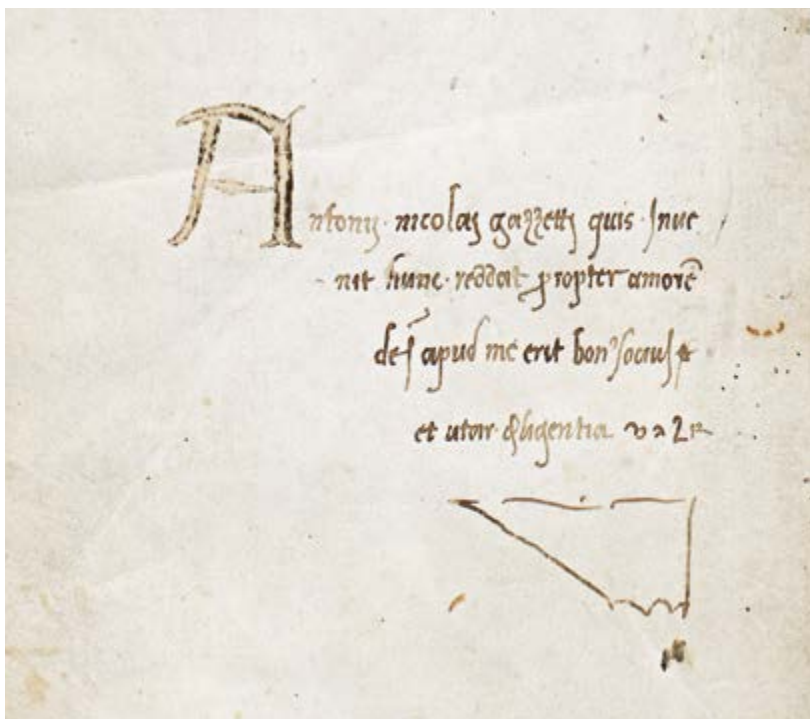 Antonij · nicolaj gazzettj quis · Inve
nit hunc · reddat propter amorē
dej apud me erit bon9 socius
et utar diligentia